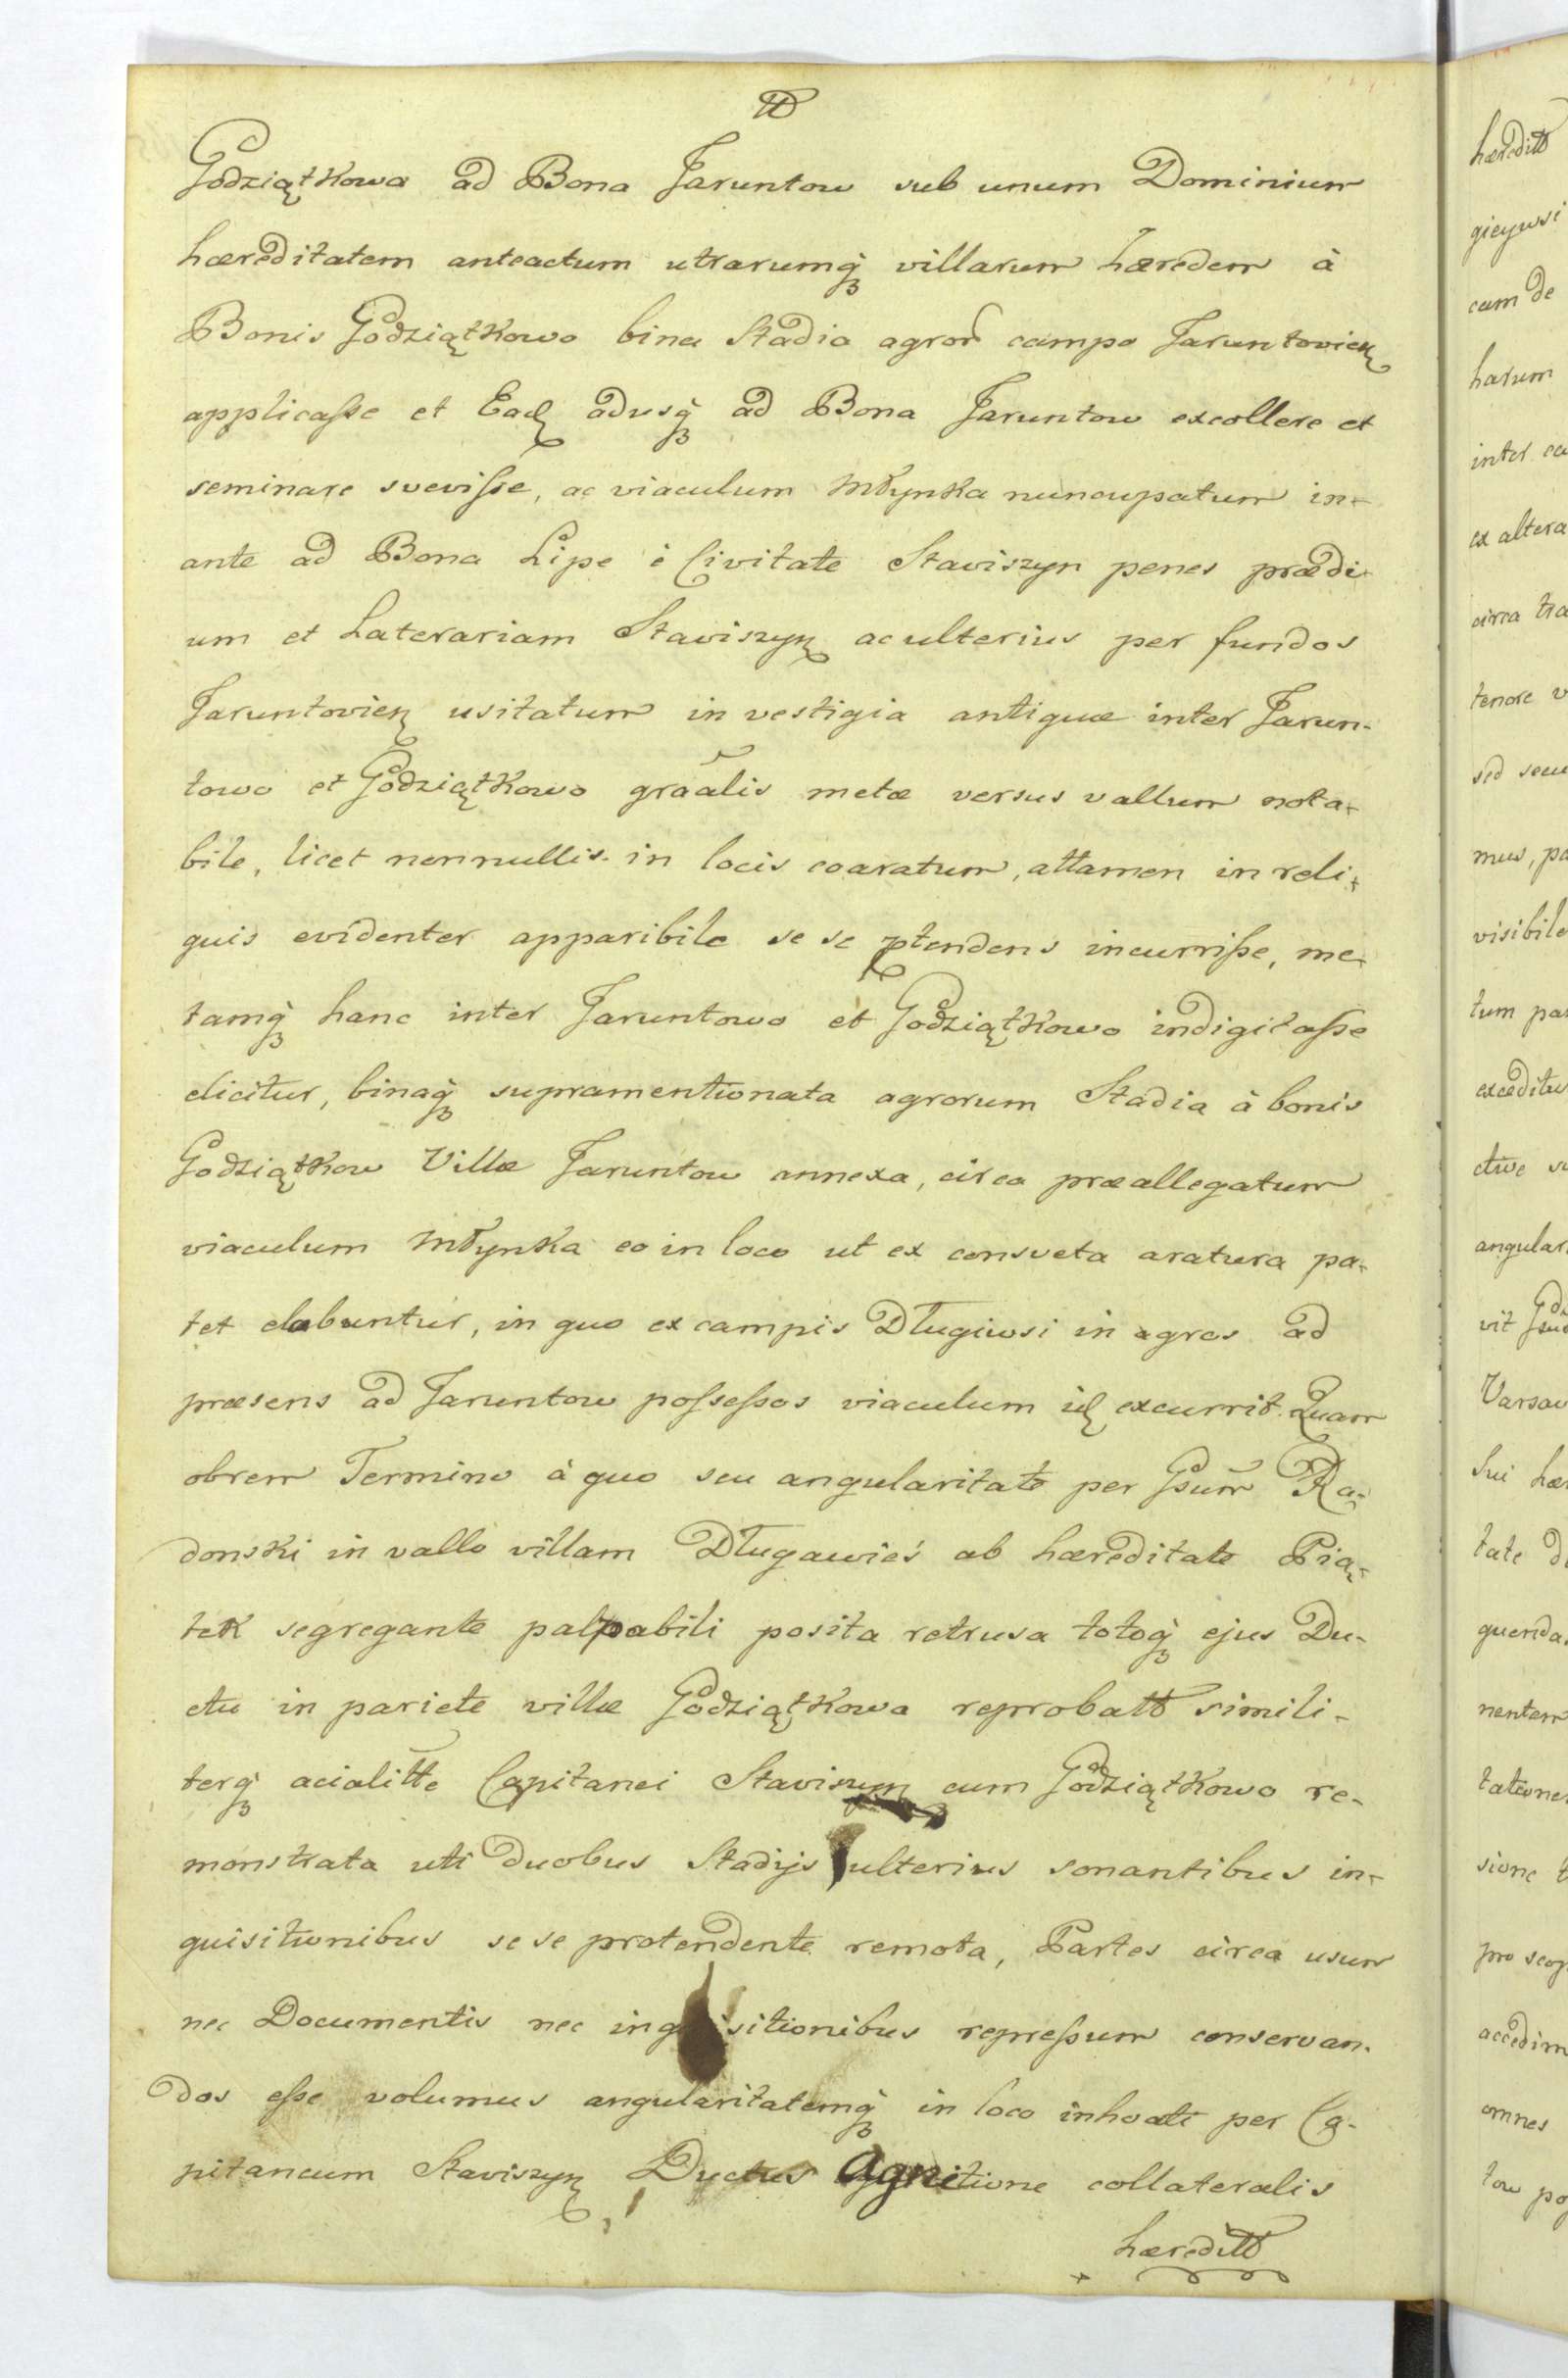 Godziątkowa ad Bona Jaruntow sub unum Dominium
hæreditatem anteactum utrarumq̀ villarum hæredem à
Bonis Godziątkowo bina Stadia agror̃ campo Jaruntovien̨
applicaſse et Ead̨ adusq̀ ad Bona Jaruntow excollere et
seminare sveviſse, ac viaculum Młynka nuncupatum in-
ante ad Bona Lipe è Civitate Staviszyn penes prædi-
um et Laterariam Staviszyn̨ ac ulterius per fundos
Jaruntovien̨ usitatum in vestigia antiquæ inter Jarun-
towo et Godziątkowo graãlis metæ versus vallum nota-
bile, licet nonnullis in locis coaratum, attamen in reli-
quis evidenter apparibile se se ptendens incurriſse, me-
tamq̀ hanc inter Jaruntowo et Godziątkowo indigitaſse
elicitur, binaq̀ supramentionata agrorum Stadia à bonis
Godziątkow Villæ Jaruntow annexa, circa præallegatum
viaculum Młynka eo in loco ut ex consveta aratura pa-
tet elabuntur, in quo ex campis Długiwsi in agros ad
præsens ad Jaruntow poſseſsos viaculum id̨ excurrit. Quam
obrem Termino à quo seu angularitate per Gsum̃ Ra-
donski in vallo villam Długawieś ab hæreditate Pią-
tek segregante palpabili posita retrusa totoq̀ ejus Du-
ctu in pariete villæ Godziątkowa reprobatto simili-
terq̀ acialitte Capitanei Staviszyn cum Godziątkowo re-
monstrata uti duobus Stadijs ulterius sonantibus in-
quisitionibus se se protendente remota, Partes circa usum
nec Documentis nec inquisitionibus repreſsum conservan-
dos eſse volumus angularitatemq̀ in loco inhoati per Ca-
pitaneum Staviszyn̨ Ductus Agnitione collateralis
hæreditt
hæreditt
cum de
harum
ex altera
circa tra
tenore v
mus, pa
visibile
tum par
angular
Varsav
tate d
nentem
accedim
omnes